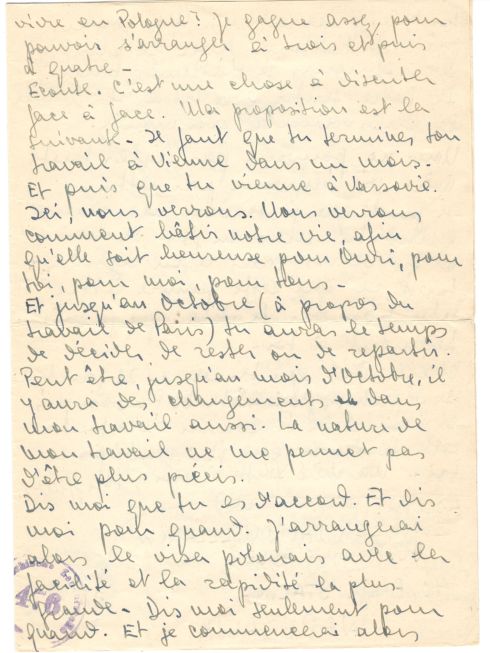 vivre en Pologne? Je gagne assez pour
pouvoir s'arranger à trois et puis
à quatre -
Ecoute. C'est une chose à discuter
face à face. Ma proposition est la
suivante - Il faut que tu termines ton
travail à Vienne dans un mois.
Et puis que tu vienne à Varsovie.
Ici, nous verrons. Nous verrons
comment bâtir notre vie, afin
qu'elle soit heureuse pour Ouri, pour
toi, pour moi, pour tous -
Et jusqu'au Octobre (à propos du
travail de Paris) tu auras le temps
de décider de rester ou de repartir.
Peut être, jusqu'au mois d'Octobre, il
y aura des changements dans
mon travail aussi. La nature de
mon travail ne me permet pas
d'être plus précis.
Dis moi que tu es d'accord. Et dis
moi pour quand. J'arrangerai
alors le visa polonais avec la
facilité et la rapidité la plus
grande - Dis moi seulement pour
quand. Et je commencerai alors